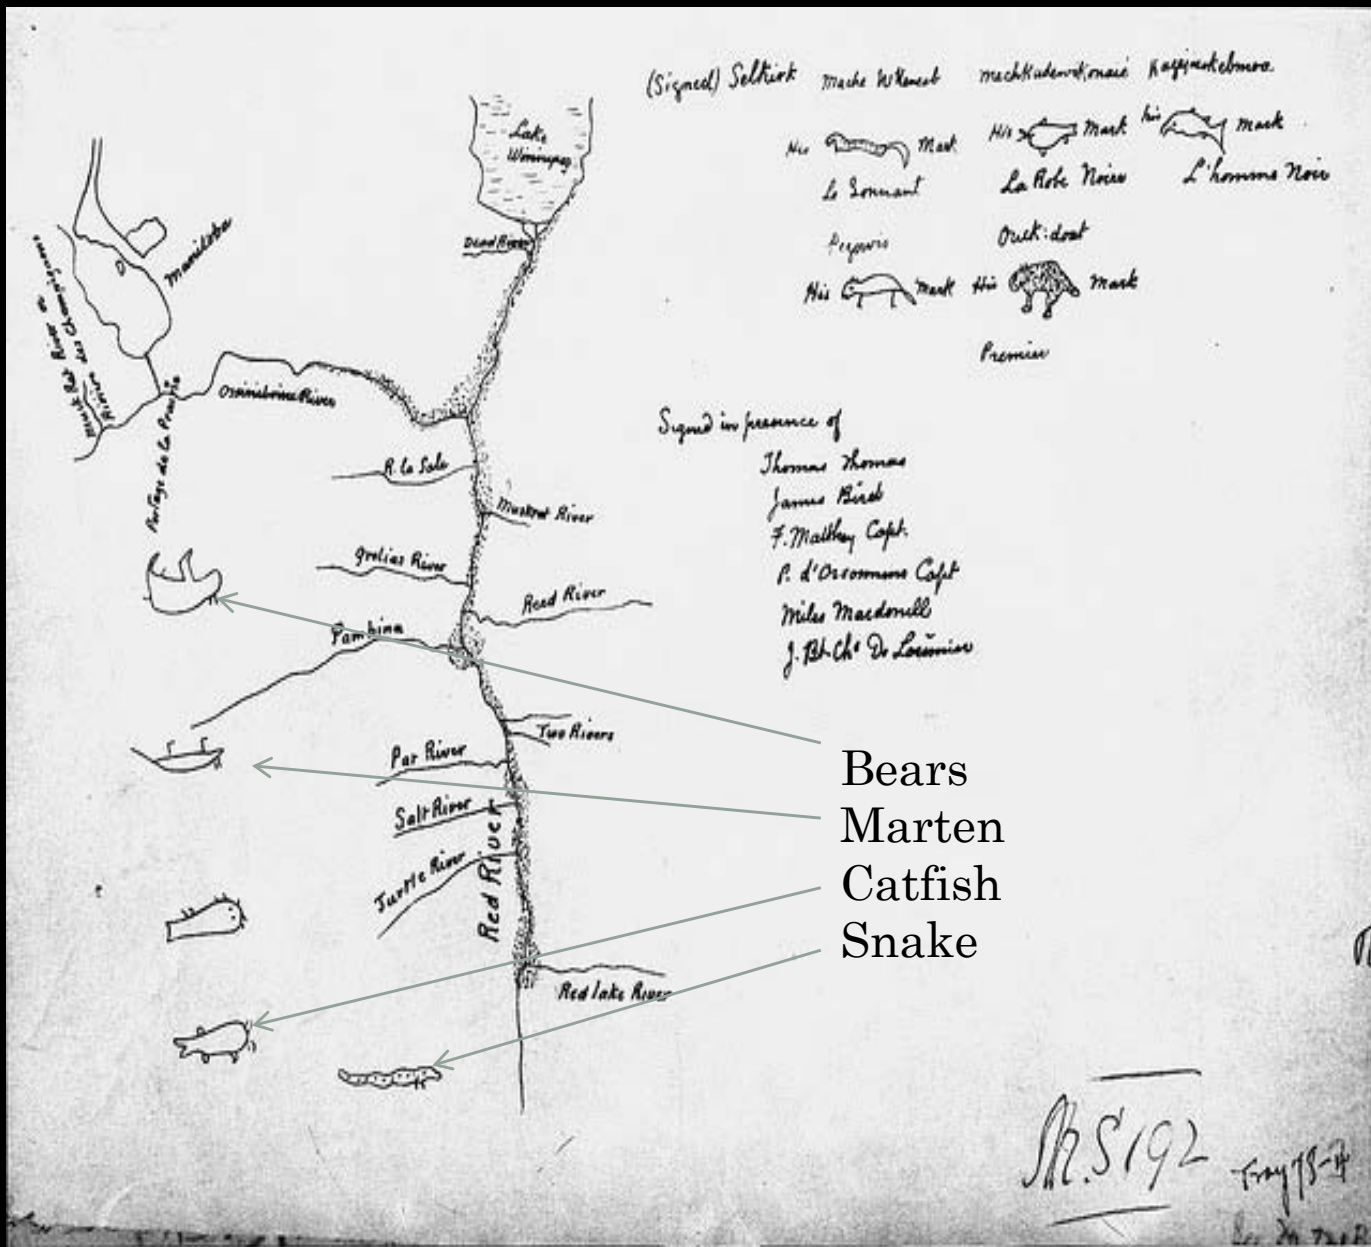 (Signed) Selkirk
His Mark His Mark his Mark
Le Sonnant La Robe Noire L'homme Noir
Pegowis Ouck:doat
His Mark His Mark
Premier
Signed in presence of
Thomas Thomas
James Bird
F. Matthey Capt.
P. d'Orsonnens Capt
Miles Macdonell
J. Bt. Chs. De Lorimier
Lake
Winnipeg
Dead River
Manitoba
Musk Rat River or
Rivière des Champignons
Portage de La Prairie
Ossiniboine River
R. La Sale
Muskrat River
Grolias River
Reed River
Pambina
Two Rivers
Par River
Salt River
Turtle River
Red River
Red lake River
Bears
Marten
Catfish
Snake
M.S 192